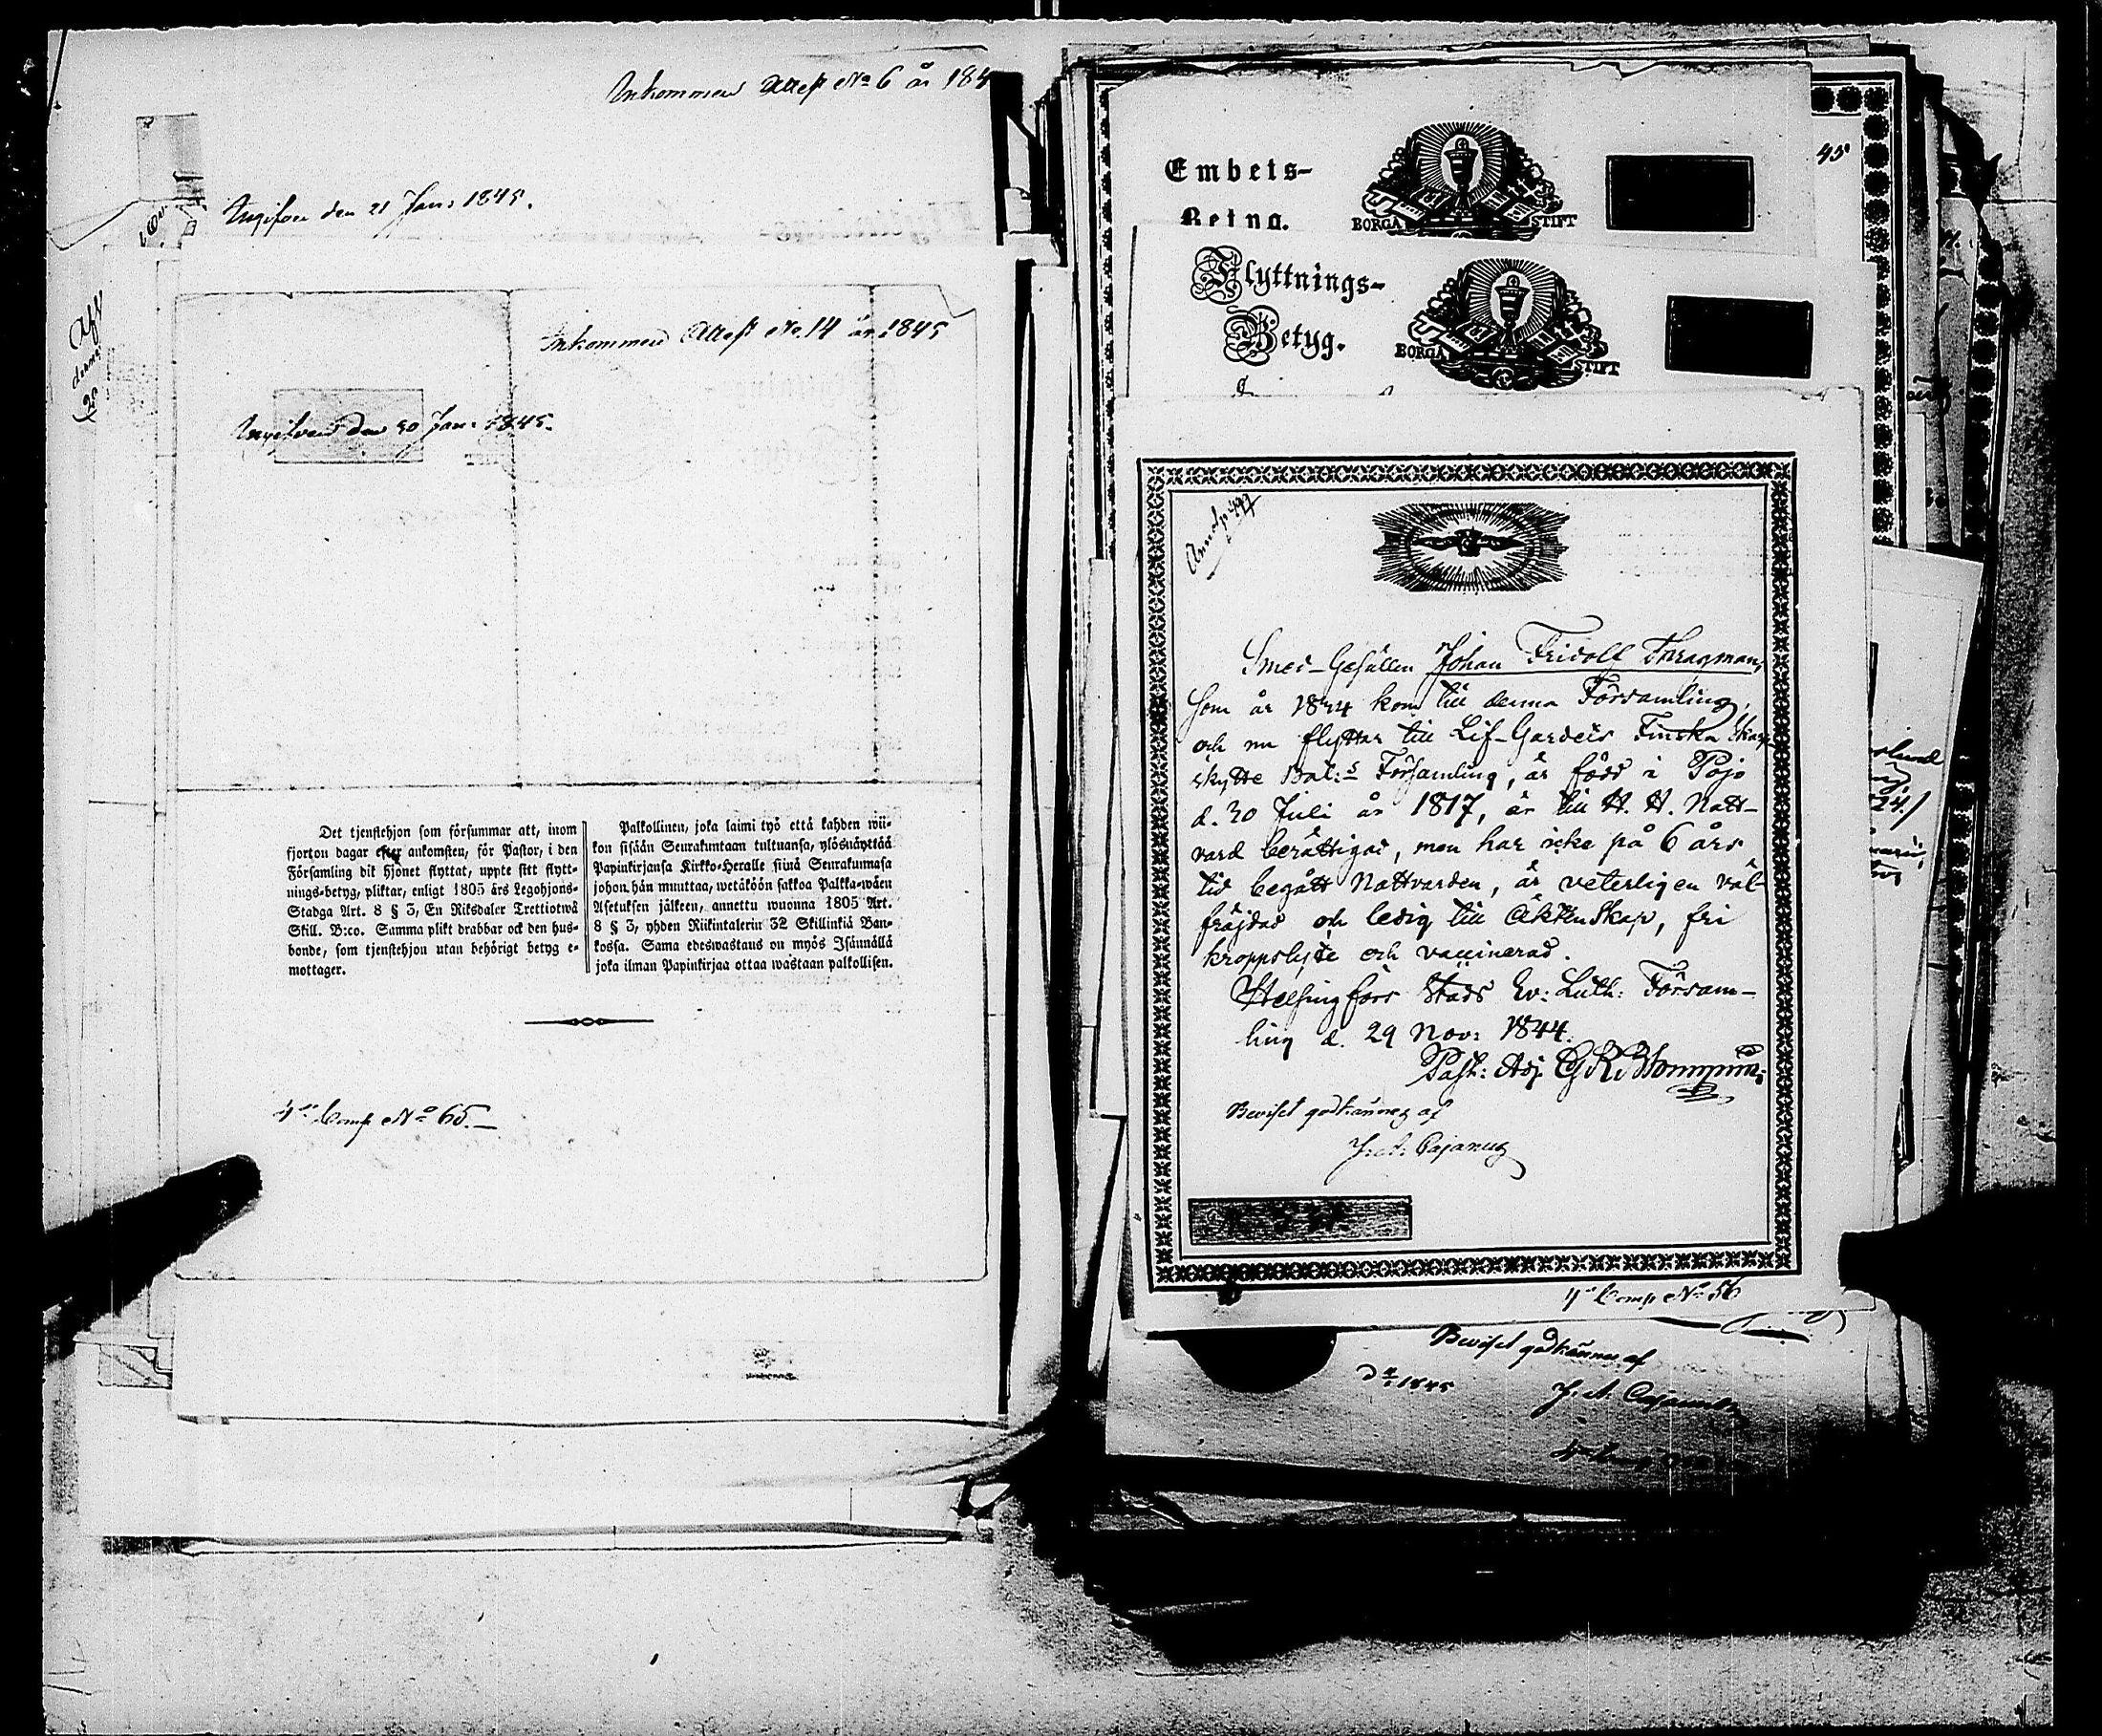 Inkommen Attest No 6 år 184
Ingifven den 21 Jan: 1845.
Inkommen Attest No. 14 år 1845
Ingifven den 30 Jan: 1845.
Det tjenstehjon som försummar att, inom
fjorton dagar efter ankomsten, för Pastor, i den
Församling dit hjonet flyttat, uppte sitt flytt-
nings-betyg, pliktar, enligt 1805 års Legohjons-
Stadga Art. 8 § 3, En Riksdaler Trettiotwå
Skill. B:co. Samma plikt drabbar ock den hus-
bonde, som tjenstehjon utan behörigt betyg e-
mottager.
Palkollinen, joka laimi lyö että kahden wii-
kon sisään Seurakuntaan tultuansa, ylösnäyttää
Papinkirjansa Kirkko-Heralle siinä Seurakunnasa
johon hän muuttaa, wetäköön sakkoa Palkka-wäen
Asetuksen jälkeen, annettu wuonna 1805 Art.
8 § 3, yhden Riikintalerin 32 Skillinkiä Ban-
kossa. Sama edeswastaus on myös Isännällä
joka ilman Papinkirjaa ottaa wastaan palkollisen.
4de Comp No 65.
Embets-
BORGÅ STIFT
45
Flyttnings-
Betyg.
BORGÅ STIFT
Smed-Gesällen Johan Fridolf Thragman,
som år 1844 kom till denna Församling,
och nu flyttar till Lif-Gardets Finska Skarp
skytte Bat:s Församling, är född i Pojo
d. 30 Juli år 1817, är till H. H. Natt-
vard berättigad, men har icke på 6 års
tid begått Nattvarden, är veterligen väl-
fräjdad och ledig till Äktenskap, fri
kroppslyte och vaccinerad.
Helsingfors Stads Ev: Luth: Försam-
ling d. 29 Nov: 1844.
Past: Adj.
Beviset godkännes af
J. A. Cajanus
4de Comp No 56
Beviset godkännes af
1845
J. A. Cajanus